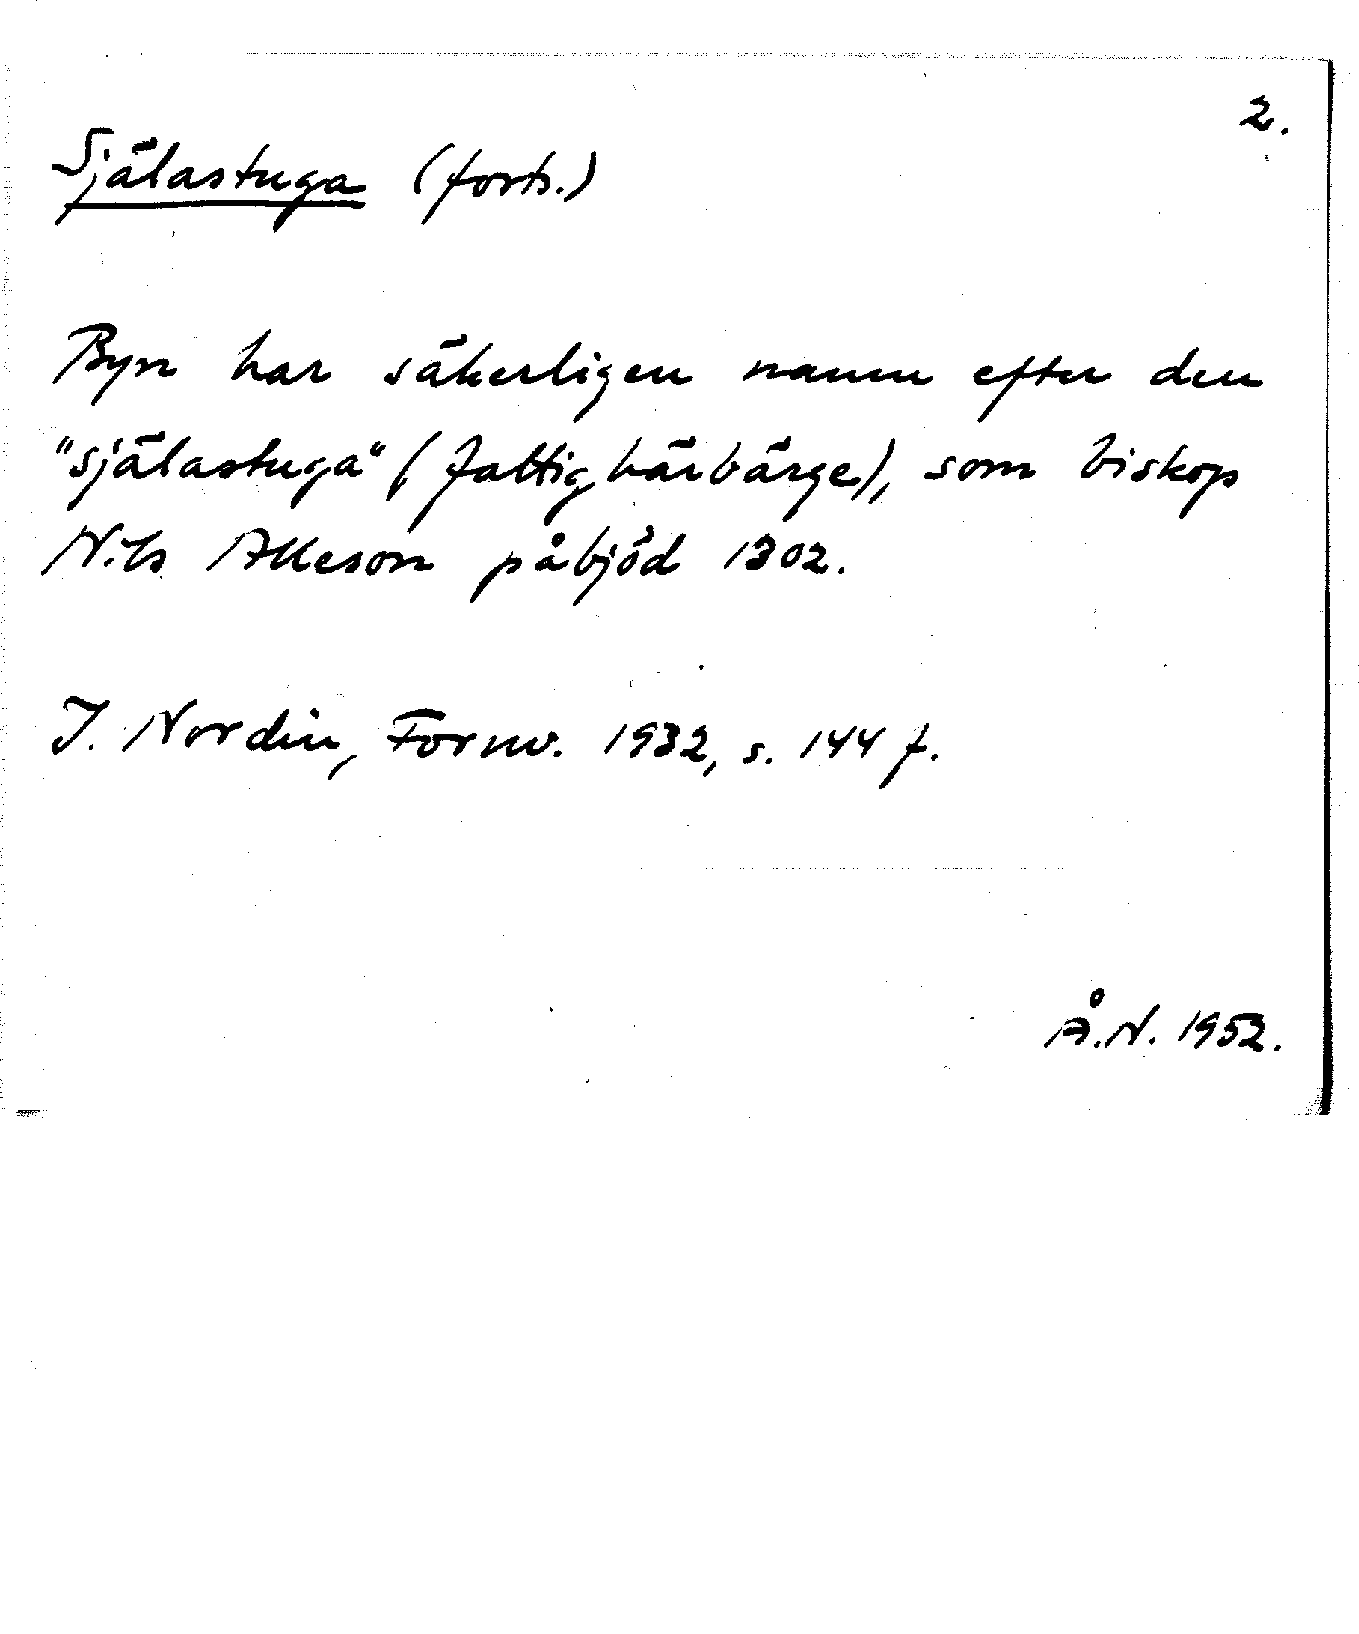 2.
Själastuga (forts.)
Byn har säkerligen namn efter den
"själastuga" (fattighärbärge), som biskop
Nils Alleson påbjöd 1302.
I. Nordin, Fornv. 1932, s. 144 f.
Å.N. 1952.